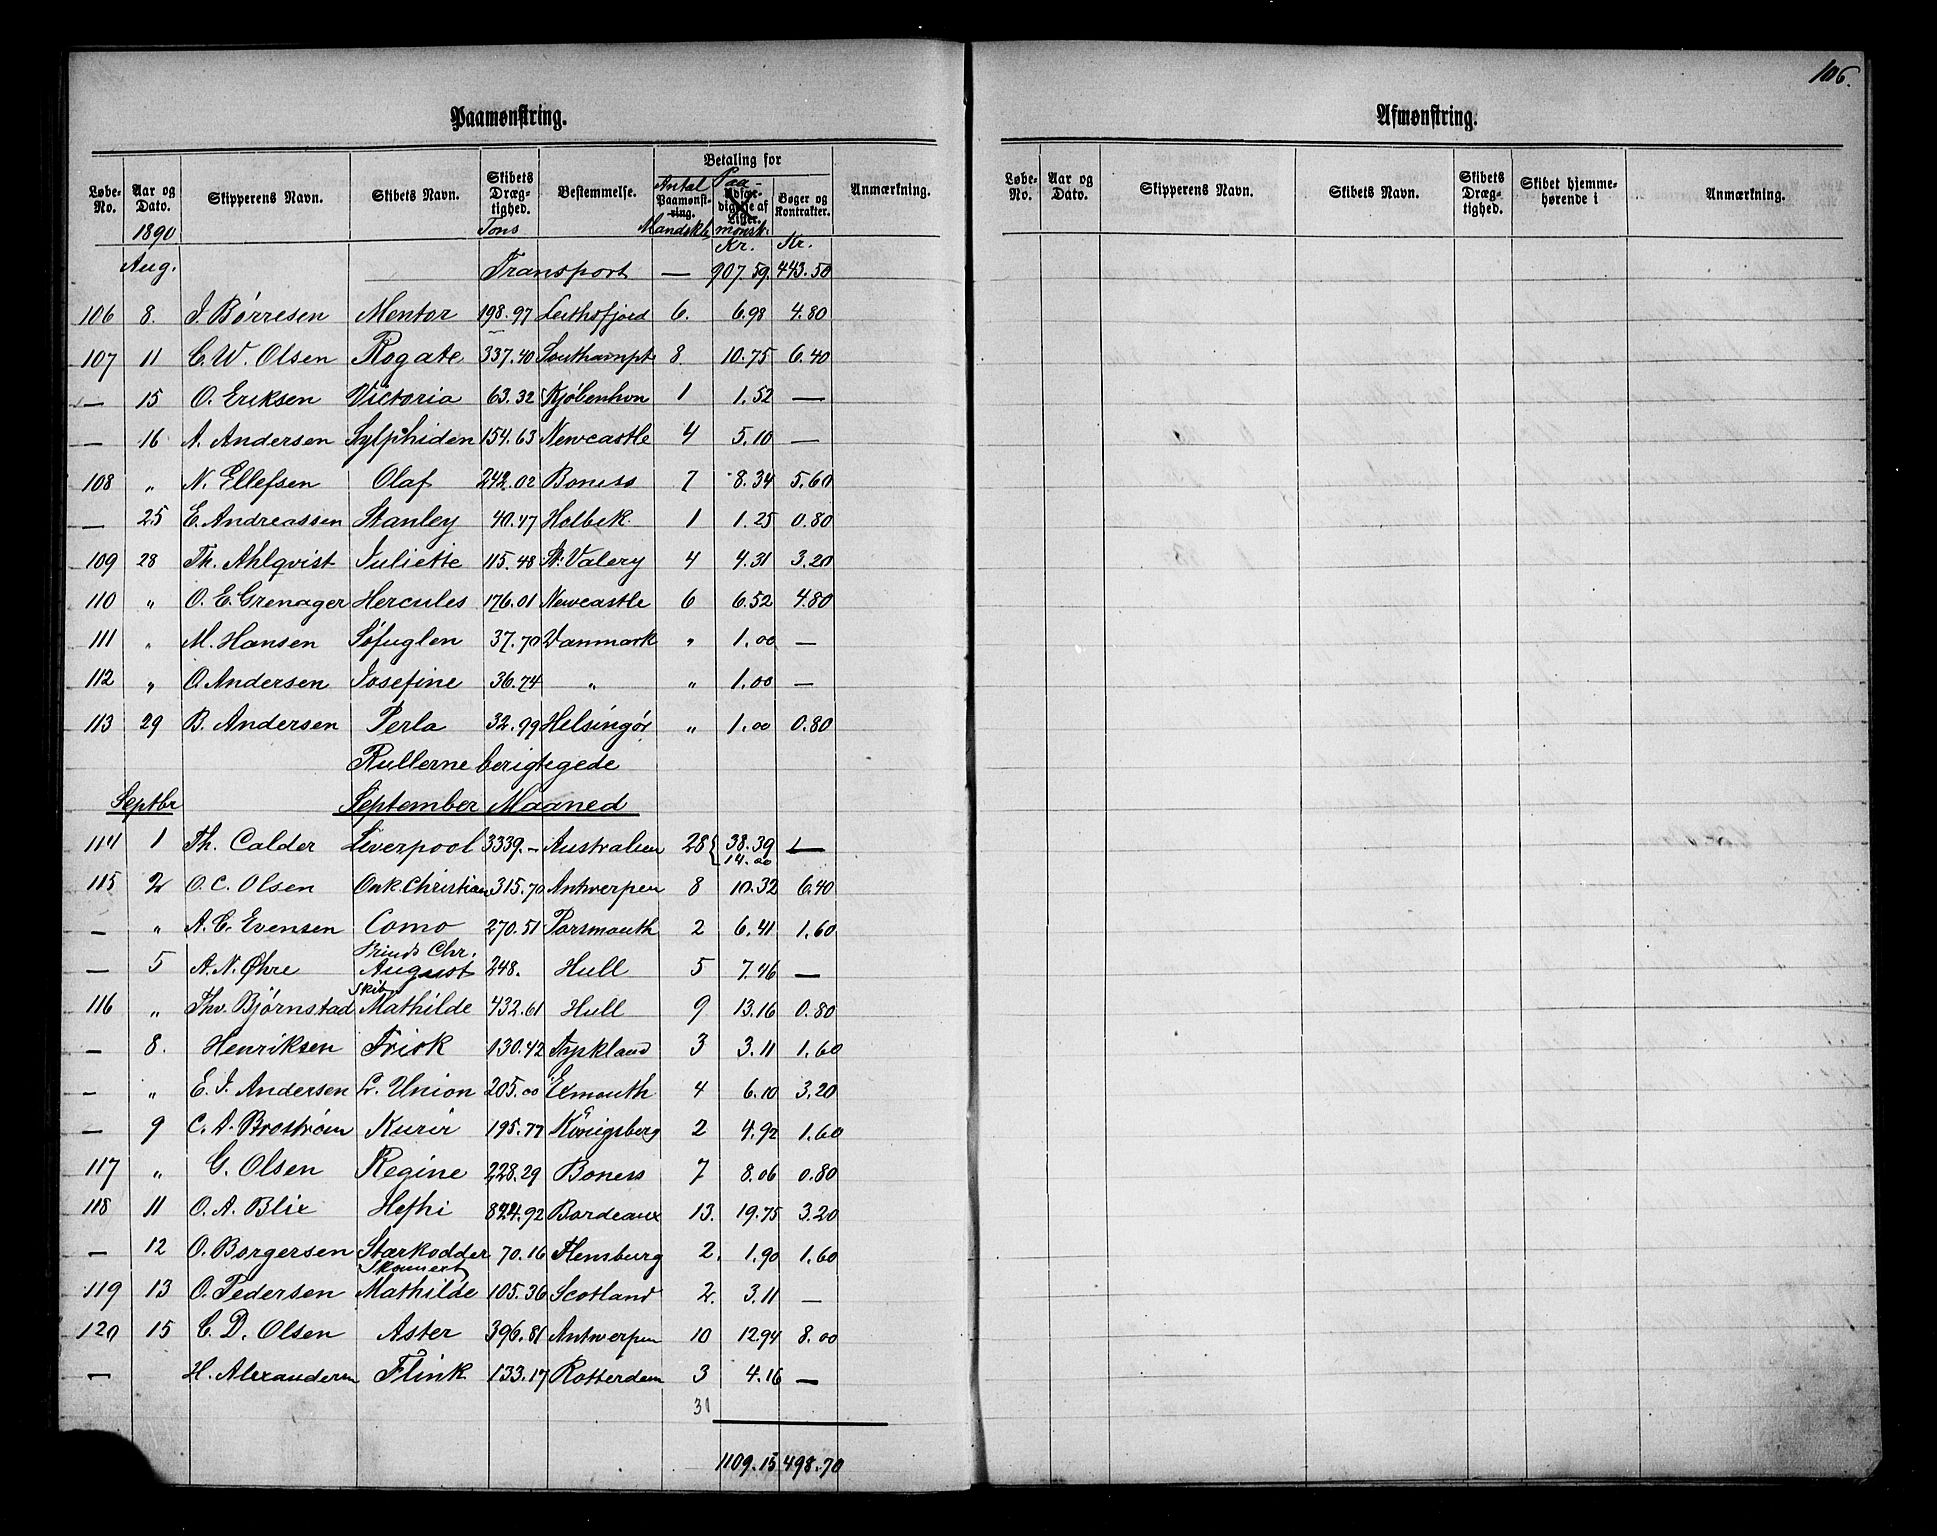 106.
Paamønstring.
Løbe-No. Aar og Dato. Skipperens Navn. Skibets Navn. Skibets Drægtighed. Bestemmelse. Betaling for Anmærkning.
Antal Paamønstring. Mandskb. Paa- Udfærdigelse af Lister. mønst. Bøger og Kontrakter.
1890 Tons Kr. Kr.
Aug. Transport — 907.59 443.50
106 8. J. Børresen Mentor 198.97 Leithsfjord 6. 6.98 4.80
107 11 C. W. Olsen Rogate 337.40 Southampt 8. 10.75 6.40
— 15 O. Eriksen Victoria 63.32 Kjøbenhvn 1 1.52 —
— 16 A. Andersen Sylphiden 154.63 Newcastle 4 5.10 —
108 " N. Ellefsen Olaf 242.02 Boness 7 8.34 5.60
— 25 E. Andreassen Stanley 40.47 Holbek. 1 1.25 0.80
109 28 Th. Ahlqvist Juliette 115.48 St. Valery 4 4.31 3.20
110 " O. E. Grenager Hercules 176.01 Newcastle 6 6.52 4.80
111 " M. Hansen Søfuglen 37.70 Danmark " 1.00 —
112 " O. Andersen Josefine 36.74 " " 1.00 —
113 29 B. Andersen Perla 32.99 Helsingør " 1.00 0.80
Rullerne berigtegede
Septbr September Maaned
114 1 Th. Calder Liverpool 3339.— Australien 28 { 38.39 —
14.00
115 2 O. C. Olsen Onk Christian 315.70 Antwerpen 8 10.32 6.40
— " A. C. Evensen Como 270.51 Porsmouth 2 6.41 1.60
Prinds Chr.
— 5 A. N. Øhre August 248. Hull 5 7.46 —
Skib
116 " Thv. Bjørnstad Mathilde 432.61 Hull 9 13.16 0.80
— 8. Henriksen Frisk 130.42 Tyskland 3 3.11 1.60
— " E. J. Andersen L. Union 205.00 Exmouth 4 6.10 3.20
— 9 C. A. Broström Kurir 195.77 Königsberg 2 4.92 1.60
117 " G. Olsen Regine 228.29 Boness 7 8.06 0.80
118 11 O. A. Blix Hefhi 824.92 Bordeaux 13. 19.75 3.20
— 12 O. Borgersen Stærkodder 70.16 Flensburg 2. 1.90 1.60
Skonnert
119 13 O. Pedersen Mathilde 105.36 Scotland 2. 3.11 —
120 15 C. D. Olsen Aster 396.81 Antwerpen 10 12.94 8.00
— H. Alexandersen Flink 133.17 Rotterdam 3 4.16 —
31
1109.15 498.70
Afmønstring.
Løbe-No. Aar og Dato. Skipperens Navn. Skibets Navn. Skibets Drægtighed. Skibet hjemmehørende i Anmærkning.